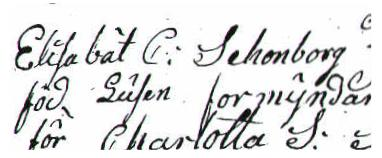 Elisabåt C: Schonborg
föd Lûsen formÿndar
för Charlotta S: